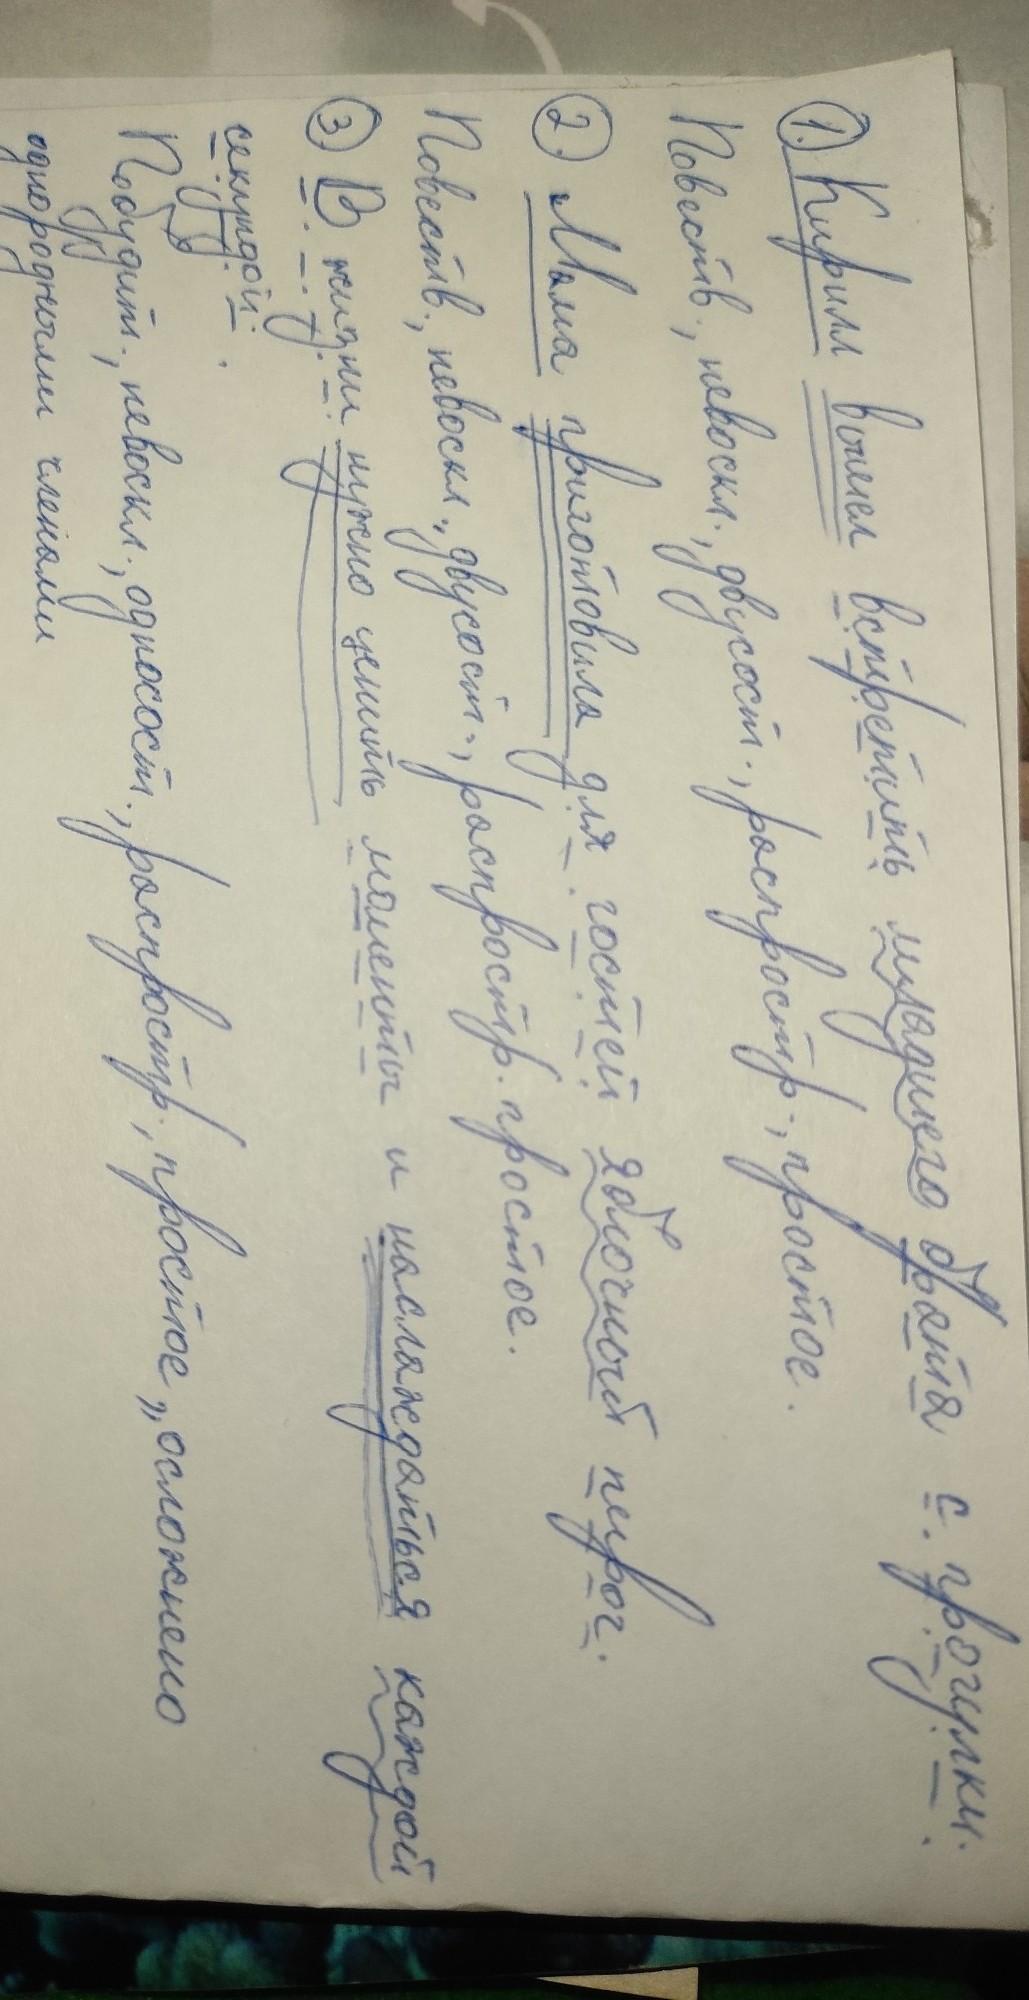 1. Кирилл вышел встретить младшего брата с прогулки.
Повеств., невоскл., двусост., распростр., простое.
2. Мама приготовила для гостей яблочный пирог.
Повеств., невоскл., двусост., распростр. простое.
3 В жизни нужно ценить моменты и наслаждаться каждой
секундой.
Побудит., невоскл., односост., распростр., простое, осложнено
однородными членами